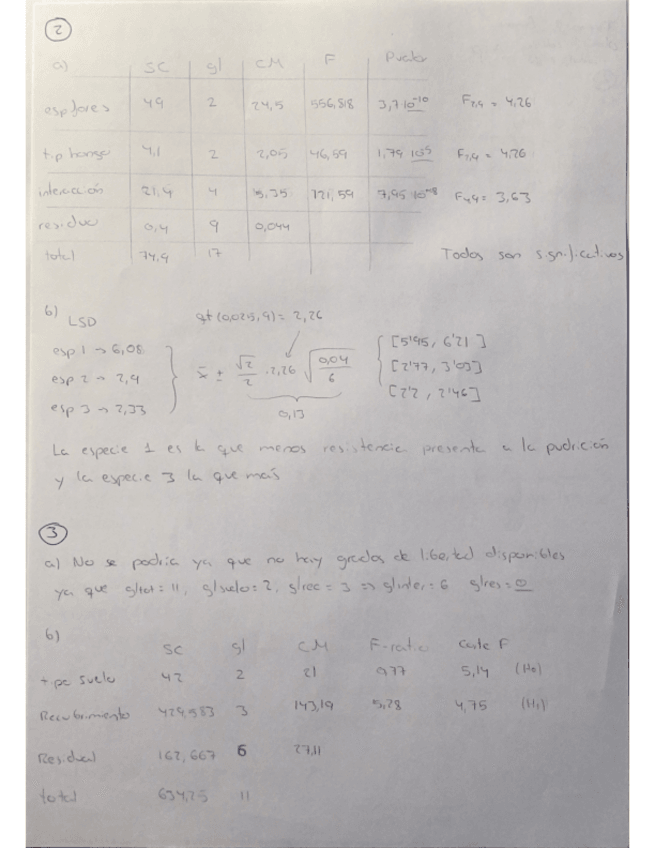 2
a) SC gl CM F Pvalor
esp flores 49 2 24,5 556,818 3,7 10^-10 F2,9 = 4,26
tip hongo 4,1 2 2,05 46,59 1,79 10^-5 F2,9 = 4,26
interacción 21,4 4 5,35 121,59 7,95 10^-8 F4,9 = 3,63
residuo 0,4 9 0,044
total 74,9 17
Todos son significativos
b) LSD
qt(0,025,9) = 2,26
esp 1 → 6,08
esp 2 → 2,9
esp 3 → 2,33
x̄ ± √2/2 · 2,26 √0,04/6
0,13
[5'95, 6'21]
[2'77, 3'03]
[2'2, 2'46]
La especie 1 es la que menos resistencia presenta a la pudrición
y la especie 3 la que más
3
a) No se podría ya que no hay grados de libertad disponibles
ya que gltot = 11, glsuelo = 2, glrec = 3 ⇒ glinter = 6 glres = 0
b)
SC gl CM F-ratio Corte F
tipo suelo 42 2 21 0,77 5,14 (H0)
Recubrimiento 429,583 3 143,19 5,28 4,75 (H1)
Residual 162,667 6 27,11
total 634,25 11